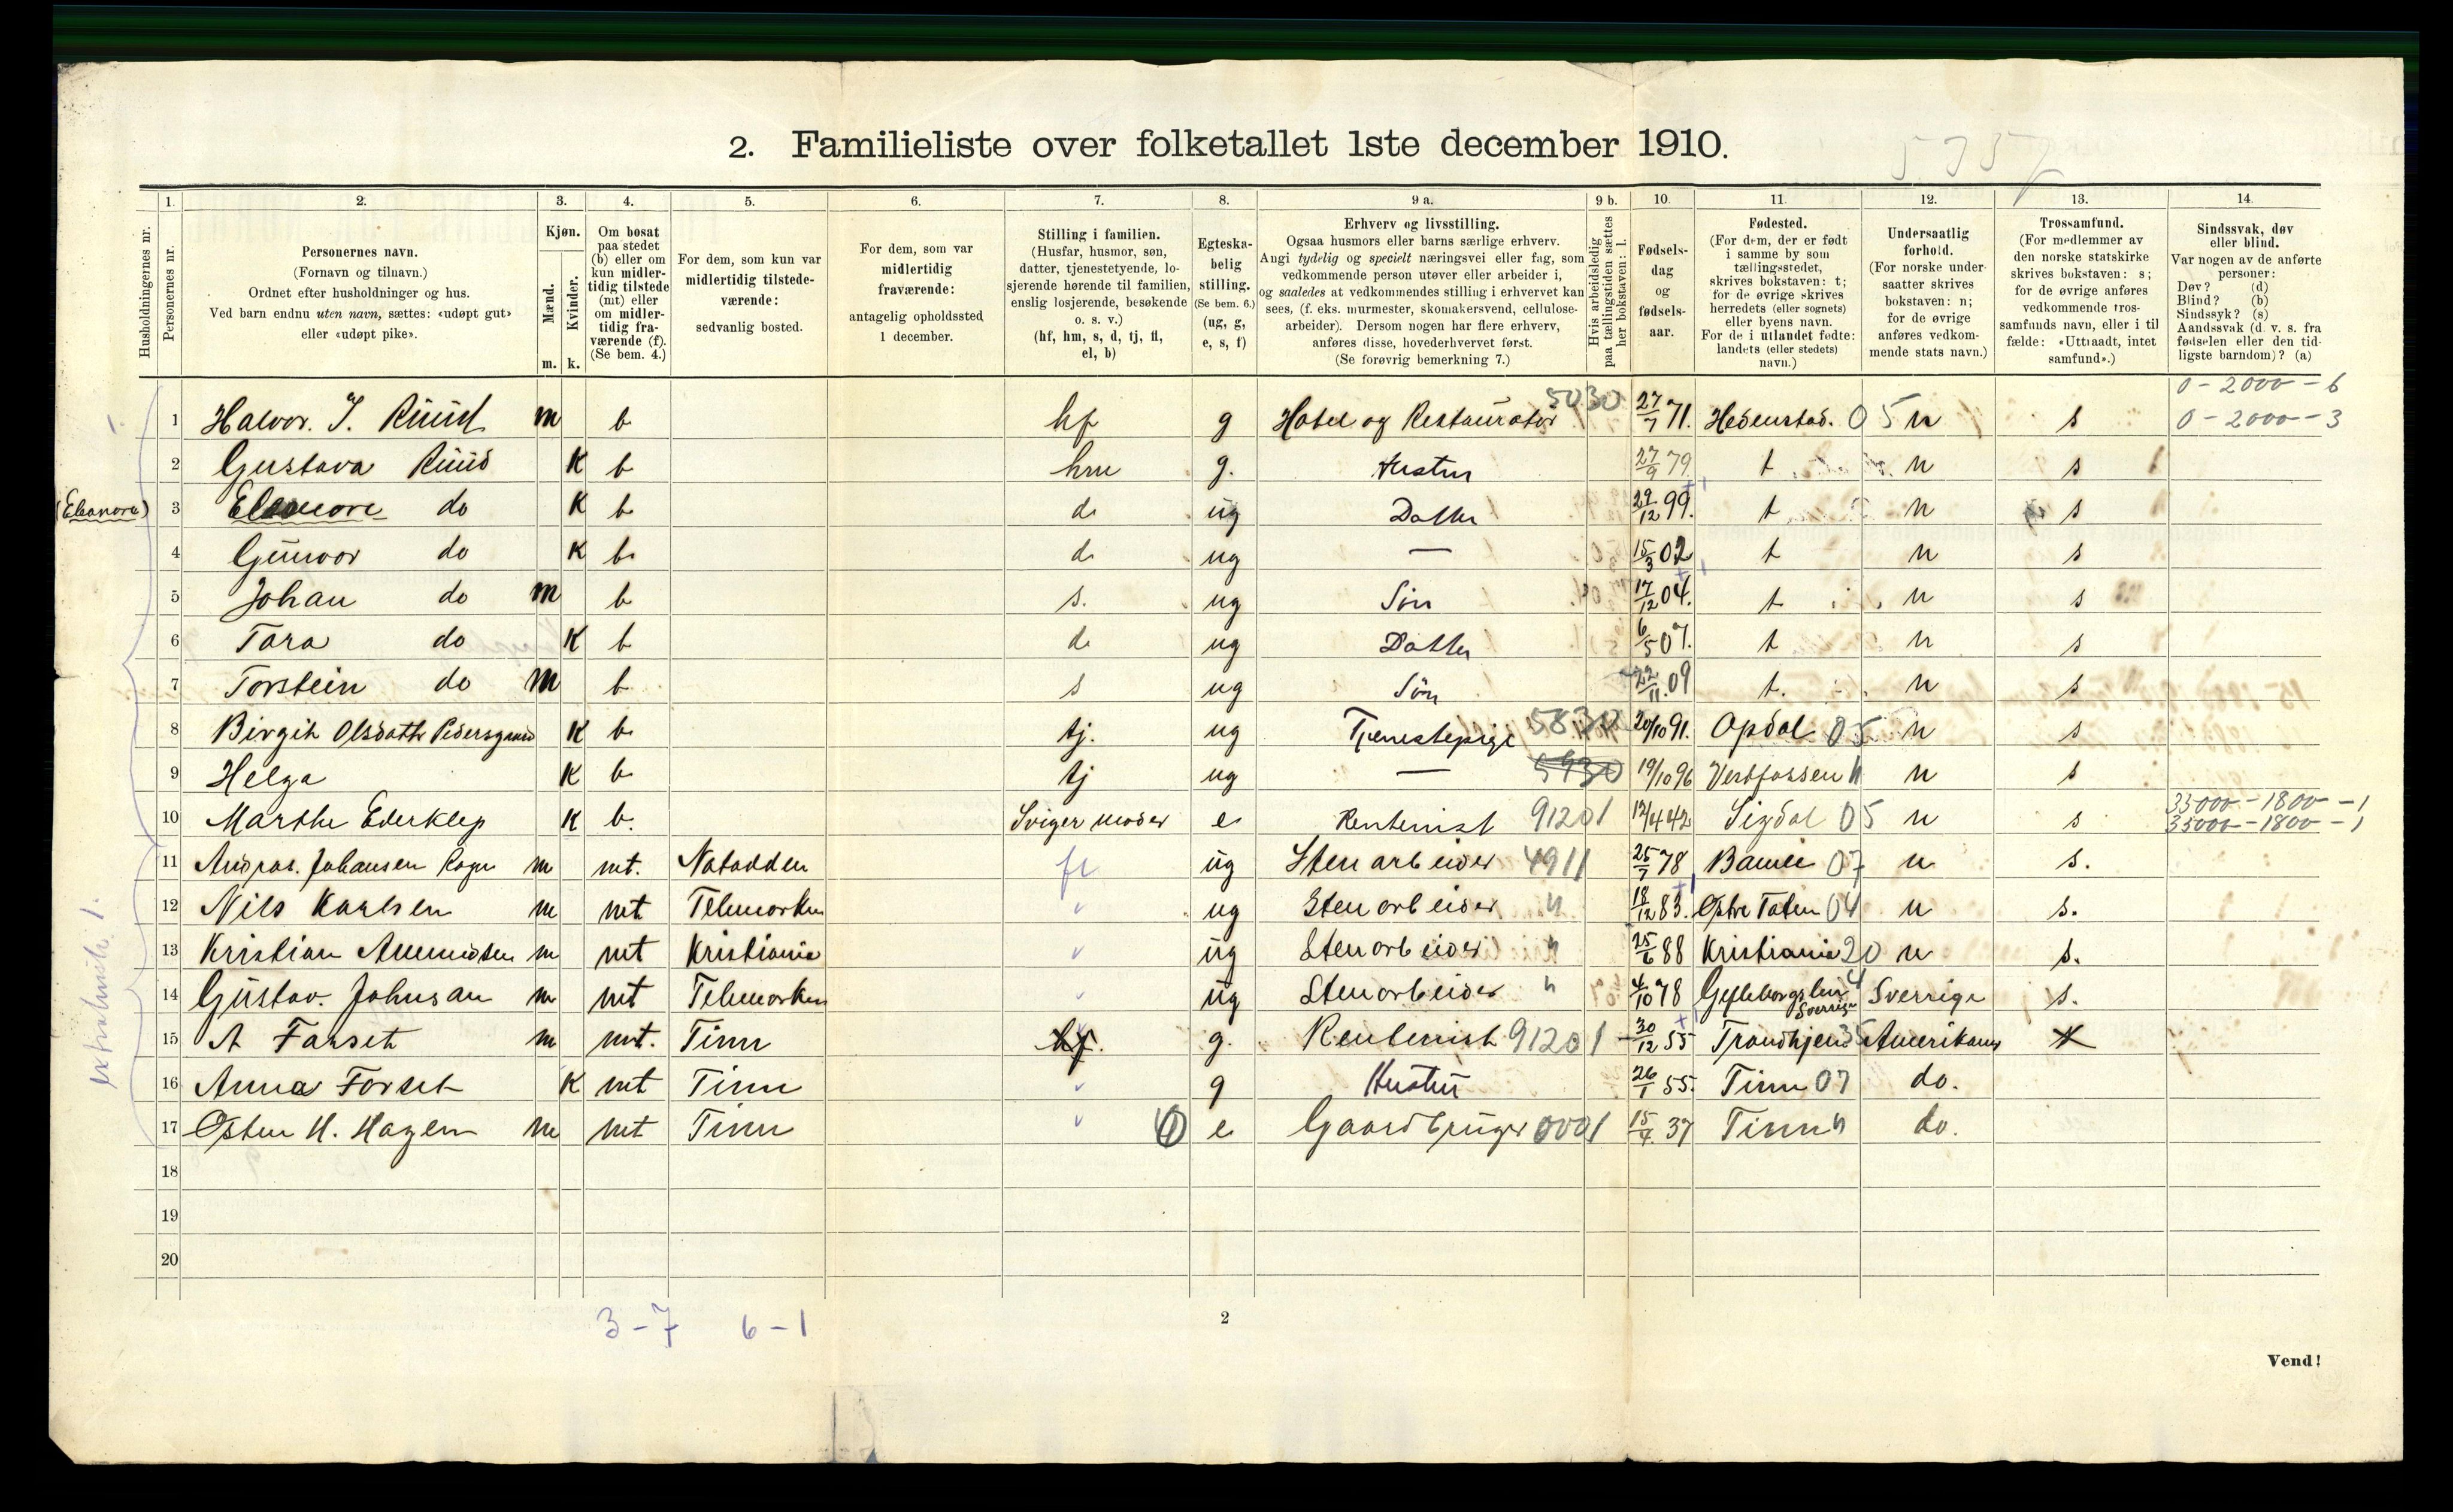 2. Familieliste over folketallet 1ste december 1910.
1. 2. 3. 4. 5. 6. 7. 8. 9 a. 9 b. 10. 11. 12. 13. 14.
Husholdningernes nr.
Personernes nr.
Personernes navn.
(Fornavn og tilnavn.)
Ordnet efter husholdninger og hus.
Ved barn endnu uten navn, sættes: «udøpt gut»
eller «udøpt pike».
Kjøn.
Mænd.
Kvinder.
m. k.
Om bosat
paa stedet
(b) eller om
kun midler-
tidig tilstede
(mt) eller
om midler-
tidig fra-
værende (f).
(Se bem. 4.)
For dem, som kun var
midlertidig tilstede-
værende:
sedvanlig bosted.
For dem, som var
midlertidig
fraværende:
antagelig opholdssted
1 december.
Stilling i familien.
(Husfar, husmor, søn,
datter, tjenestetyende, lo-
sjerende hørende til familien,
enslig losjerende, besøkende
o. s. v.)
(hf, hm, s, d, tj, fl,
el, b)
Egteska-
belig
stilling.
(Se bem. 6.)
(ug, g,
e, s, f)
Erhverv og livsstilling.
Ogsaa husmors eller barns særlige erhverv.
Angi tydelig og specielt næringsvei eller fag, som
vedkommende person utøver eller arbeider i,
og saaledes at vedkommendes stilling i erhvervet kan
sees, (f. eks. murmester, skomakersvend, cellulose-
arbeider). Dersom nogen har flere erhverv,
anføres disse, hovederhvervet først.
(Se forøvrig bemerkning 7.)
Hvis arbeidsledig
paa tællingstiden sættes
her bokstaven: l.
Fødsels-
dag
og
fødsels-
aar.
Fødested.
(For dem, der er født
i samme by som
tællingsstedet,
skrives bokstaven: t;
for de øvrige skrives
herredets (eller sognets)
eller byens navn.
For de i utlandet fødte:
landets (eller stedets)
navn.)
Undersaatlig
forhold.
(For norske under-
saatter skrives
bokstaven: n;
for de øvrige
anføres vedkom-
mende stats navn.)
Trossamfund.
(For medlemmer av
den norske statskirke
skrives bokstaven: s;
for de øvrige anføres
vedkommende tros-
samfunds navn, eller i til
fælde: «Uttraadt, intet
samfund».)
Sindssvak, døv
eller blind.
Var nogen av de anførte
personer:
Døv? (d)
Blind? (b)
Sindssyk? (s)
Aandssvak (d. v. s. fra
fødselen eller den tid-
ligste barndom)? (a)
0-2000-6
1 Halvor. T. Ruud m b hf g Hotel og Restauratør 5030 27/7 71. Hedenstad. 05 n s 0-2000-3
2 Gustava Ruud K b hm g. Hustru 27/9 79 t n s
(Eleanora) 3 Eleanore do K b d ug Datter 29/12 99. t n s
4 Gunvor do K b d ug — 15/3 02 t n s
5 Johan do m b s. ug Søn 17/12 04. t n s
6 Tora do K b d ug Datter 6/5 07. t n s
7 Torstein do m b s ug Søn 22/11.09 t. n s
8 Birgit Olsdatter Pedersgaard K b tj. ug Tjenestepige 5830 20/10 91. Opdal 05 n s
9 Helga K b tj ug — 5930 19/10 96 Vestfossen " n s
33000-1800-1
10 Marthe Ederklep K b. Sviger moder e Rentenist 91201 /4 42 Sigdal 05 n s 33000-1800-1
11 Andreas. Johansen m mt. Notodden fl ug Stenarbeider 4911 25/7 78 Bamle 07 n s.
12 Nils Karlsen m mt Telemarken ug Stenarbeider " 18/12 83. Østre Toten 04 n s.
13 Kristian Amundsen m mt Kristiania ug Stenarbeider " 25/6 88 Kristiania 20 n s.
14 Gustav. Johnsan m mt Telemarken ug Stenarbeider " 4/10 78 Gefleborgslen Sverrige Sverrige s.
15 A Forset m mt. Tinn hf. g. Rentenist 91201 30/12 55 Trondhjem 35 Amerikans
16 Anna Forset K mt Tinn g Hustru 26/1 55. Tinn 07 do.
17 Østen H. Hagen m mt Tinn e Gaardbruger 0001 15/4 37 Tinn " do.
18
19
20
3-7 6-1
2
Vend!